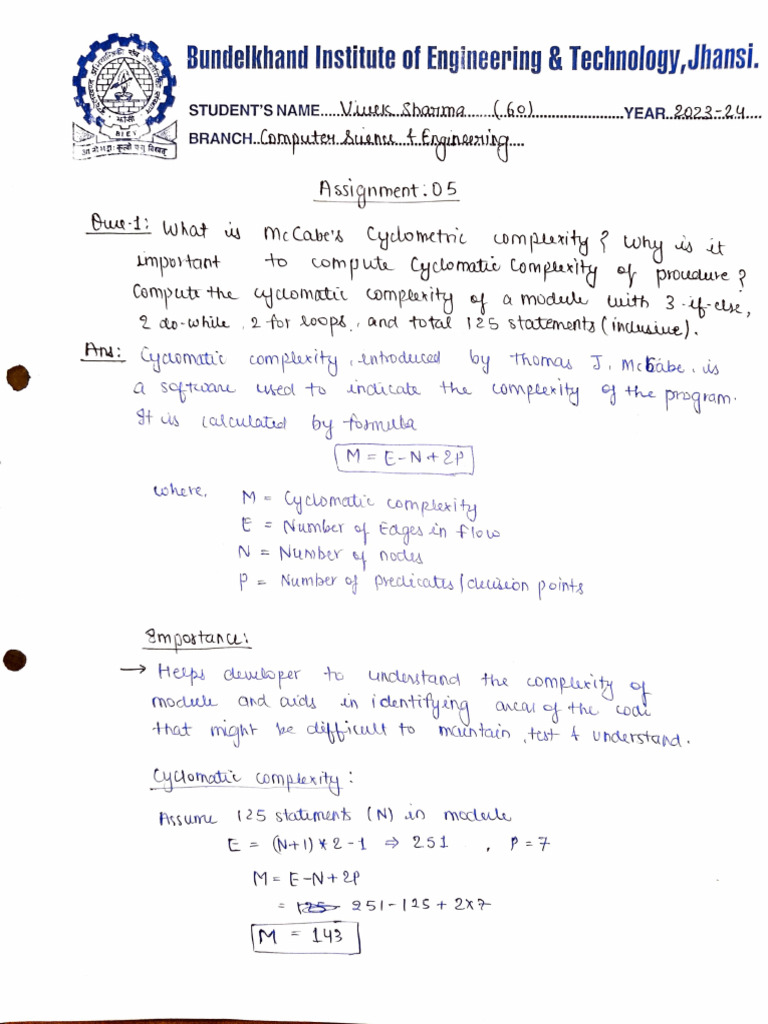 Bundelkhand Institute of Engineering & Technology, Jhansi.
STUDENT'S NAME....Vivek Sharma......(.60)....................YEAR..2023-24....
BRANCH..Computer Science & Engineering....
BIET
Assignment: 05
Que-1: What is McCabe's Cyclometric complexity? Why is it
important to compute Cyclomatic Complexity of procedure?
Compute the cyclomatic complexity of a module with 3-if-else,
2 do-while, 2 for loops, and total 125 statements (inclusive).
Ans: Cyclomatic complexity, introduced by Thomas J. McCabe, is
a software used to indicate the complexity of the program.
It is calculated by formula
M = E-N+2P
where, M = Cyclomatic complexity
E = Number of Edges in flow
N = Number of nodes
P = Number of predicates/decision points
Importance:
→ Helps developer to understand the complexity of
module and aids in identifying areas of the code
that might be difficult to maintain, test & understand.
Cyclomatic complexity:
Assume 125 statements (N) in module
E = (N+1)*2-1 ⇒ 251 , P=7
M = E-N+2P
= 251-125+2×7
M = 143